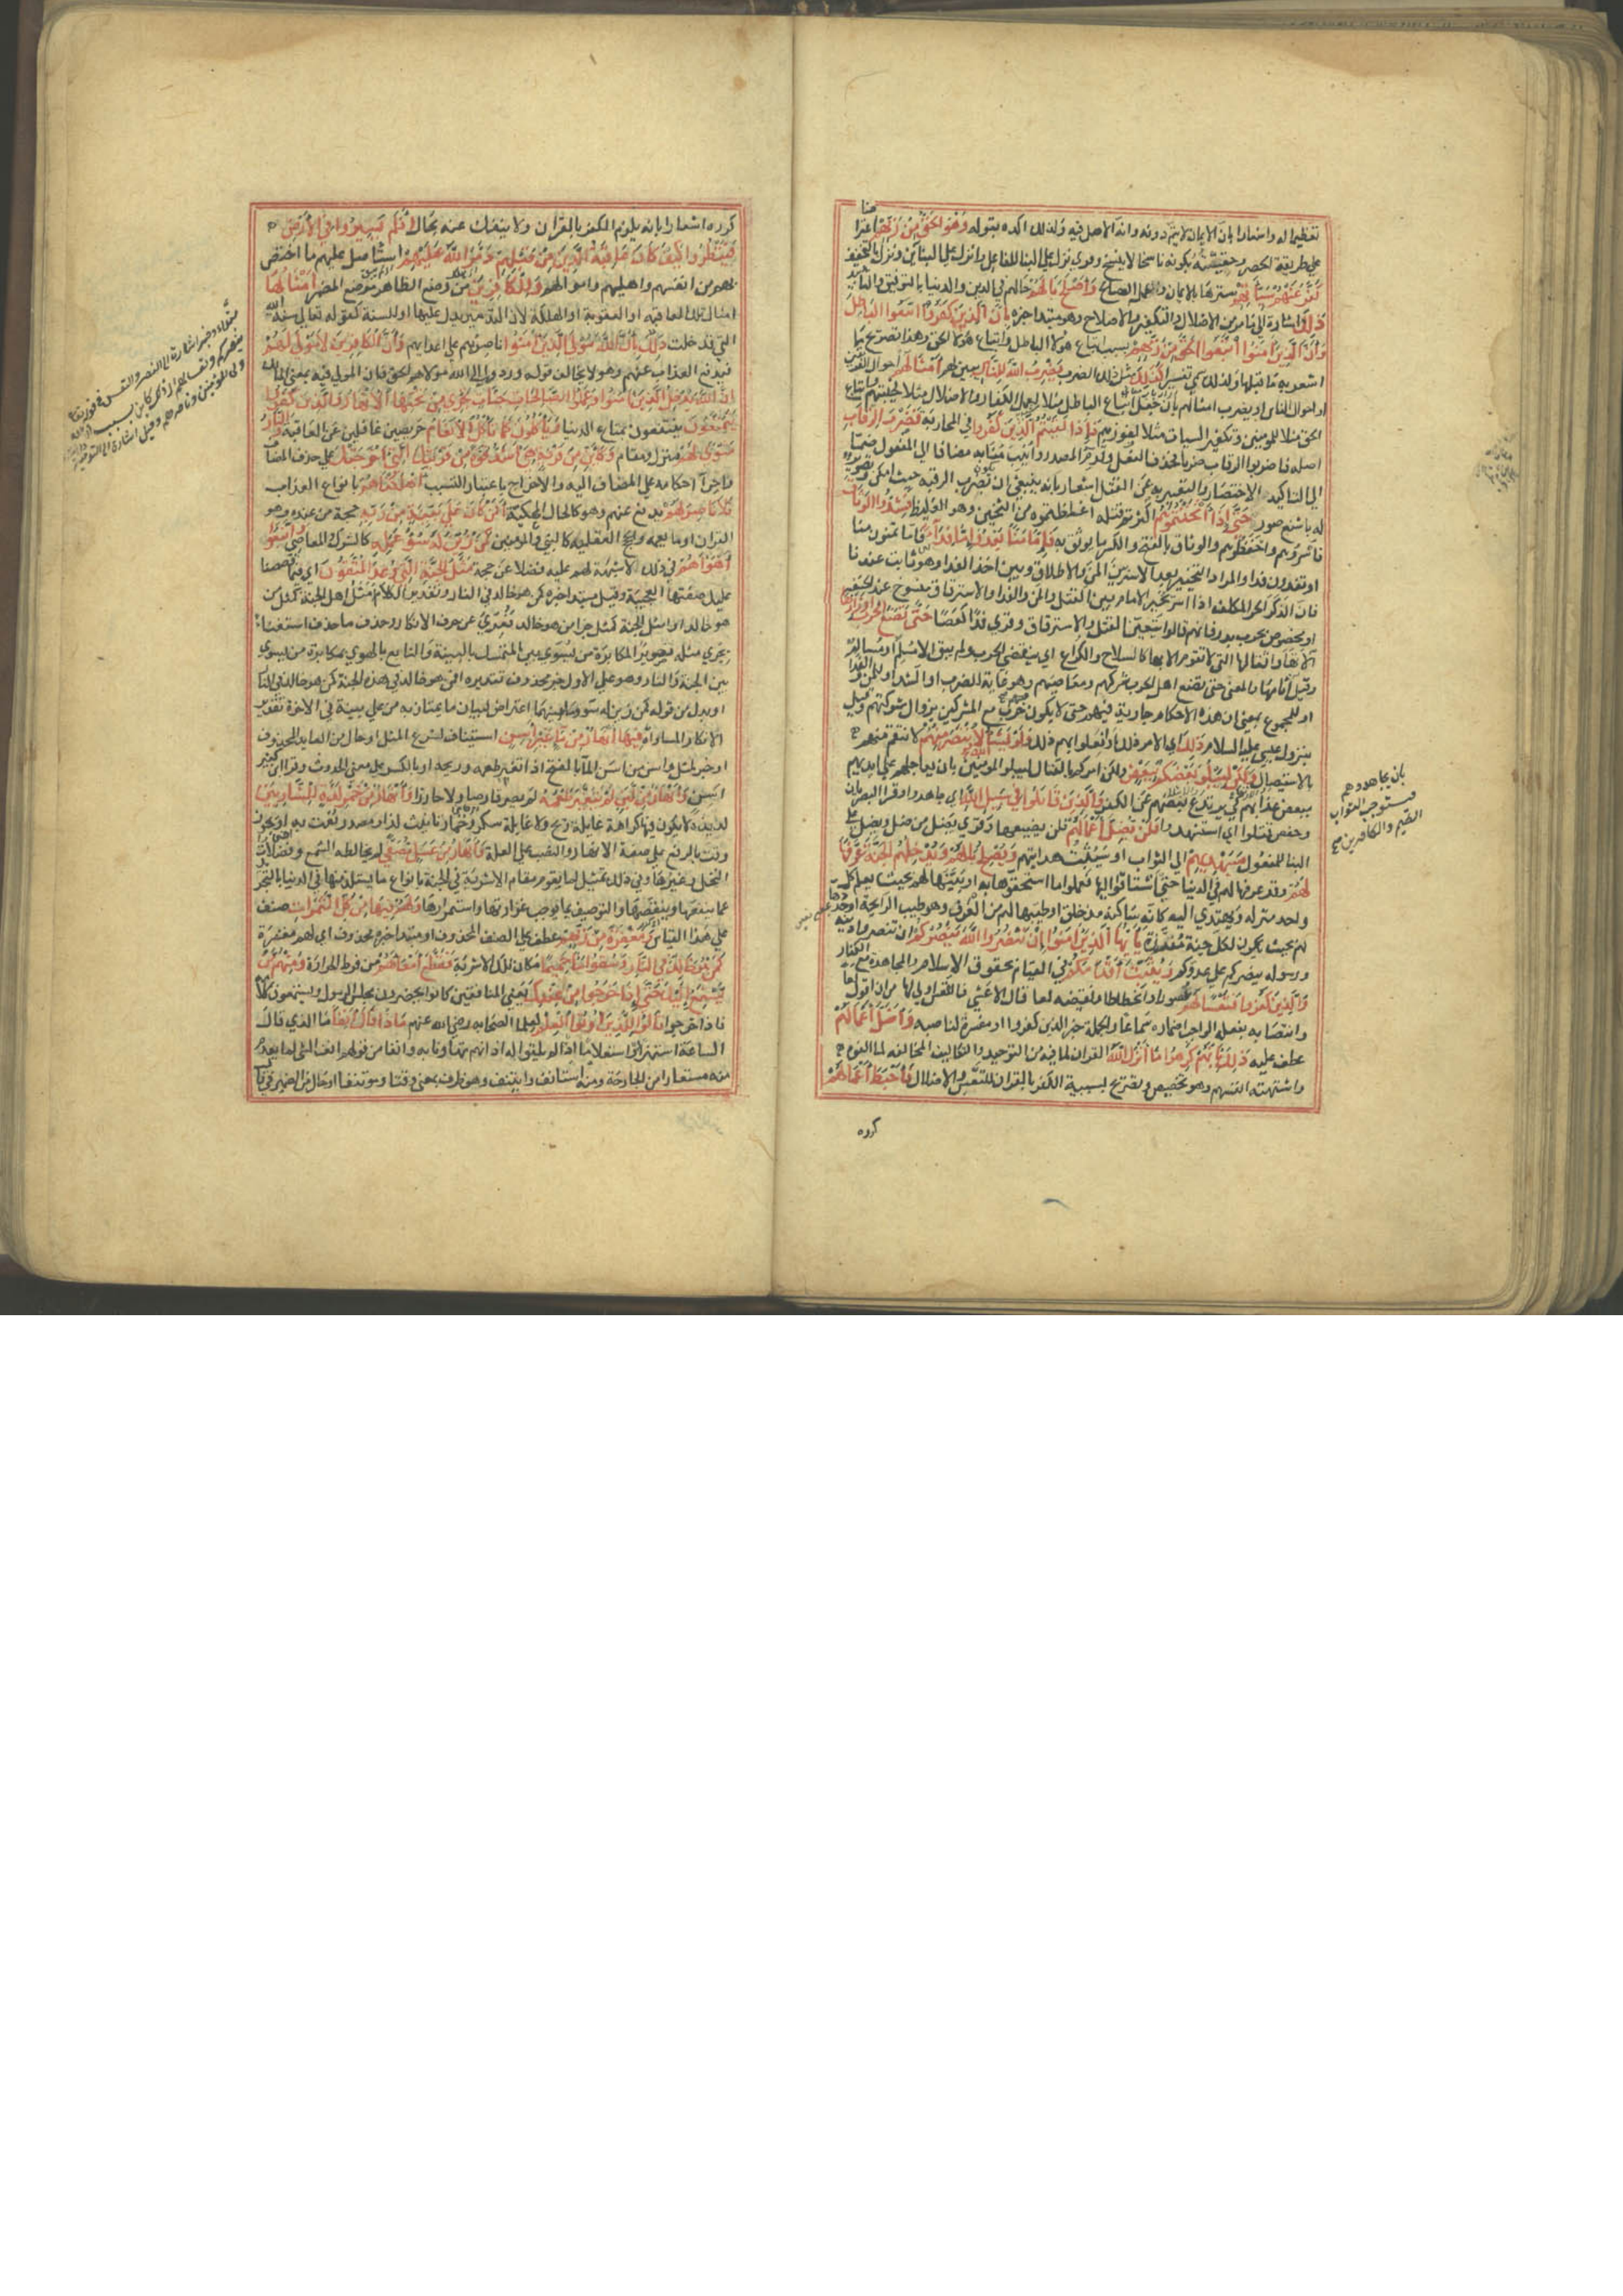 تعظيما له واشعارا بان الايمان لا يتم دونه وانه الاصل فيه ولذلك اكده بقوله وَهُوَ الحَقُّ مِنْ رَبِّهِمْ اعتراضا
على طريقة الحصر وحقيته بكونه ناسخا لا ينسخ وقري نزل على البنا للفاعل وانزل على البنائين ونزل بالتخفيف
كَفَّرَ عَنْهُمْ سَيِّآتِهِمْ سترها بالايمان والعمل الصالح وَأَصْلَحَ بَالَهُمْ حالهم في الدين والدنيا بالتوفيق والتاييد
ذَلِكَ اشارة الى ما مر من الاضلال والتكفير والاصلاح وهو مبتدا خبره بِأَنَّ الَّذِينَ كَفَرُوا اتَّبَعُوا البَاطِلَ
وَأَنَّ الَّذِينَ آمَنُوا اتَّبَعُوا الحَقَّ مِنْ رَبِّهِمْ بسبب اتباع هولا الباطل واتباع هولا الحق وهذا تصريح بما
اشعر به ما قبلها ولذلك سمي تفسيرا كَذَلِكَ مثل ذلك الضرب يَضْرِبُ اللَّهُ لِلنَّاسِ يبين لهم أَمْثَالَهُمْ احوال الفريقين
او احوال الناس او يضرب امثالهم بان جعل اتباع الباطل مثلا لعمل الكفار والاضلال مثلا لخيبتهم واتباع
الحق مثلا للمومنين وتكفير السيات مثلا لفوزهم فَإِذَا لَقِيتُمُ الَّذِينَ كَفَرُوا في المحاربة فَضَرْبَ الرِّقَابِ
اصله فاضربوا الرقاب ضربا فحذف الفعل وقدم المصدر وانيب منابه مضافا الى المفعول ضما
الى التاكيد الاختصار والتعبير به عن القتل اشعار بانه ينبغي ان يكون بضرب الرقبه حيث امكن وتصوير
له باشنع صور حَتَّى إِذَا أَثْخَنْتُمُوهُمْ اكثرتم قتلهم واغلظتموه من الثخين وهو الغليظ فَشُدُّوا الوَثَاقَ
فأسروهم واحفظوهم والوثاق بالفتح والكسر ما يوثق به فَإِمَّا مَنًّا بَعْدُ وَإِمَّا فِدَاءً فاما تمنون منا
او تفدون فدا والمراد التخيير بعد الاسر بين المن والاطلاق وبين اخذ الفدا وهو ثابت عندنا
فان الذكر الحر المكلف اذا اسر تخير الامام بين القتل والمن والفدا والاسترقاق منسوخ عند الحنفية
او مخصوص بحرب بدر فانهم قالوا يتعين القتل والاسترقاق وقري فدا كعصا حَتَّى تَضَعَ الحَرْبُ أَوْزَارَهَا
الاتها واثقالها التي لا تقوم الا بها كالسلاح والكراع اي ينقضي الحرب ولم يبق الا مسلم او مسالم
وقيل آثامها والمعنى حتى يضع اهل الحرب شركهم ومعاصيهم وهو غاية للضرب او الشد او للمن والفدا
او للمجموع بمعنى ان هذه الاحكام جارية فيهم حتى لا يكون حرب مع المشركين بزوال شوكتهم وقيل
بنزول عيسى عليه السلام ذَلِكَ اي الامر ذلك او افعلوا بهم ذلك وَلَوْ يَشَاءُ اللَّهُ لَانْتَصَرَ مِنْهُمْ لانتقم منهم
بالاستيصال وَلَكِنْ لِيَبْلُوَ بَعْضَكُمْ بِبَعْضٍ ولكن امركم بالقتال ليبلو المومنين بالكافرين بان يعاجلهم على ايديهم
ببعض عذابهم كي يرتدع بعضهم عن الكفر وَالَّذِينَ قَاتَلُوا فِي سَبِيلِ اللَّهِ اي جاهدوا وقرا البصريان
وحفص قتلوا اي استشهدوا فَلَنْ يُضِلَّ أَعْمَالَهُمْ فلن يضيعها وقري يضل من ضل ويضل على
البنا للمفعول سَيَهْدِيهِمْ الى الثواب او سيثبت هدايتهم وَيُصْلِحُ بَالَهُمْ وَيُدْخِلُهُمُ الجَنَّةَ عَرَّفَهَا
لَهُمْ وقد عرفها لهم في الدنيا حتى اشتاقوا اليها فعملوا ما استحقوها به او بينها لهم بحيث يعلم كل
واحد منزله ويهتدي اليه كانه ساكنه منذ خلق او طيبها لهم من العرف وهو طيب الرايحة او حددها
لهم بحيث يكون لكل جنة مفرزة يَا أَيُّهَا الَّذِينَ آمَنُوا إِنْ تَنْصُرُوا اللَّهَ يَنْصُرْكُمْ ان تنصروا دينه
ورسوله ينصركم على عدوكم وَيُثَبِّتْ أَقْدَامَكُمْ في القيام بحقوق الاسلام والمجاهدة مع الكفار
وَالَّذِينَ كَفَرُوا فَتَعْسًا لَهُمْ فعثورا وانحطاطا ونقيضه لعا قال الاعشى فالتعس اولى لها من ان اقول لعا
وانتصابه بفعله الواجب اضماره سماعا والجملة خبر الذين كفروا او مفسرة لناصبه وَأَضَلَّ أَعْمَالَهُمْ
عطف عليه ذَلِكَ بِأَنَّهُمْ كَرِهُوا مَا أَنْزَلَ اللَّهُ القران لما فيه من التوحيد والتكاليف المخالفه لما الفوه
واشتهته انفسهم وهو تخصيص وتصريح بسببية الكفر بالقران للتعس والاضلال فَأَحْبَطَ أَعْمَالَهُمْ
كرره
بان يجاهدوهم
فيستوجبوا الثواب
العظيم والكافرين
كرره اشعارا بانه يلزم الكفر بالقران ولا ينفك عنه بحال أَفَلَمْ يَسِيرُوا فِي الأَرْضِ
فَيَنْظُرُوا كَيْفَ كَانَ عَاقِبَةُ الَّذِينَ مِنْ قَبْلِهِمْ دَمَّرَ اللَّهُ عَلَيْهِمْ استاصل عليهم ما اختص
بهم من انفسهم واهليهم واموالهم وَلِلْكَافِرِينَ من وضع الظاهر موضع المضمر أَمْثَالُهَا
امثال تلك العاقبه او العقوبة او الهلكة لان التدمير يدل عليها او للسنة كقوله تعالى سنة الله
التي قد خلت ذَلِكَ بِأَنَّ اللَّهَ مَوْلَى الَّذِينَ آمَنُوا ناصرهم على اعدايهم وَأَنَّ الكَافِرِينَ لَا مَوْلَى لَهُمْ
فيدفع العذاب عنهم وهو لا يخالف قوله وردوا الى الله مولاهم الحق فان المولى فيه بمعنى المالك
إِنَّ اللَّهَ يُدْخِلُ الَّذِينَ آمَنُوا وَعَمِلُوا الصَّالِحَاتِ جَنَّاتٍ تَجْرِي مِنْ تَحْتِهَا الأَنْهَارُ وَالَّذِينَ كَفَرُوا
يَتَمَتَّعُونَ ينتفعون بمتاع الدنيا وَيَأْكُلُونَ كَمَا تَأْكُلُ الأَنْعَامُ حريصين غافلين عن العاقبة وَالنَّارُ
مَثْوًى لَهُمْ منزل ومقام وَكَأَيِّنْ مِنْ قَرْيَةٍ هِيَ أَشَدُّ قُوَّةً مِنْ قَرْيَتِكَ الَّتِي أَخْرَجَتْكَ على حذف المضاف
واجرا احكامه على المضاف اليه والاخراج باعتبار التسبب أَهْلَكْنَاهُمْ بانواع العذاب
فَلَا نَاصِرَ لَهُمْ يدفع عنهم وهو كالحال المحكية أَفَمَنْ كَانَ عَلَى بَيِّنَةٍ مِنْ رَبِّهِ حجة من عنده وهو
القران او ما يعمه والحجج العقليه كالنبي والمومنين كَمَنْ زُيِّنَ لَهُ سُوءُ عَمَلِهِ كالشرك والمعاصي وَاتَّبَعُوا
أَهْوَاءَهُمْ في ذلك لا شبهة لهم عليه فضلا عن حجة مَثَلُ الجَنَّةِ الَّتِي وُعِدَ المُتَّقُونَ اي فيما قصصنا
عليك صفتها العجيبة وقيل مبتدا خبره كمن هو خالد في النار وتقدير الكلام امثل اهل الجنة كمثل من
هو خالد او امثل الجنة كمثل جزا من هو خالد فعري عن حرف الانكار وحذف ما حذف استغناء
يجري مثله تصويرا لمكابرة من يسوي بين المتمسك بالبينة والتابع بالهوى بمكابرة من يسوي
بين الجنة والنار وهو على الاول خبر محذوف تقديره افمن هو خالد في هذه الجنة كمن هو خالد في النار
او بدل من قوله كمن زين له سو وما بينهما اعتراض لبيان ما يمتاز به من على بينة في الاخرة تقدير
الانكار المساواة فِيهَا أَنْهَارٌ مِنْ مَاءٍ غَيْرِ آسِنٍ استيناف لشرح المثل او حال من العايد المحذوف
او خبر لمثل وآسن من اسن الما بالفتح اذا تغير طعمه وريحه او بالكسر على معنى الحدوث وقرا ابن كثير
اسن وَأَنْهَارٌ مِنْ لَبَنٍ لَمْ يَتَغَيَّرْ طَعْمُهُ لم يصر قارصا ولا حازرا وَأَنْهَارٌ مِنْ خَمْرٍ لَذَّةٍ لِلشَّارِبِينَ
لذيذة لا يكون فيها كراهة غايلة ريح ولا غايلة سكر وخمار تانيث لذ او مصدر نعت به او تجوز
وقريت بالرفع على صفة الانهار والنصب على العلة وَأَنْهَارٌ مِنْ عَسَلٍ مُصَفًّى لم يخالطه الشمع وفضلات
النحل وغيرها وفي ذلك تمثيل لما يقوم مقام الاشربة في الجنة بانواع ما يستلذ منها في الدنيا بالتجريد
عما ينقصها وينغصها والتوصيف بما يوجب غزارتها واستمرارها وَلَهُمْ فِيهَا مِنْ كُلِّ الثَّمَرَاتِ صنف
على هذا القياس وَمَغْفِرَةٌ مِنْ رَبِّهِمْ عطف على الصنف المحذوف او مبتدا خبره محذوف اي لهم مغفرة
كَمَنْ هُوَ خَالِدٌ فِي النَّارِ وَسُقُوا مَاءً حَمِيمًا مكان تلك الاشربة فَقَطَّعَ أَمْعَاءَهُمْ من فرط الحرارة وَمِنْهُمْ مَنْ
يَسْتَمِعُ إِلَيْكَ حَتَّى إِذَا خَرَجُوا مِنْ عِنْدِكَ يعني المنافقين كانوا يحضرون مجلس الرسول ويستمعون كلامه
فاذا خرجوا قَالُوا لِلَّذِينَ أُوتُوا العِلْمَ لعلما الصحابه رضي الله عنهم مَاذَا قَالَ آنِفًا ما الذي قال
الساعة استهزاء او استعلاما اذ لم يلقوا له اذانهم تهاونا به وانفا من قولهم انف الشي لما تقدم
منه مستعار من الجارحة ومنه استانف وايتنف وهو ظرف بمعنى وقتا موتنفا او حال من الضمير في قال